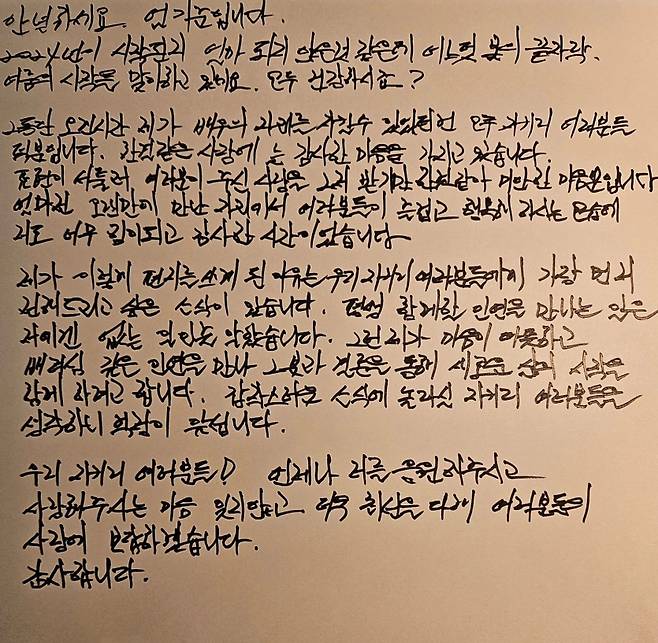 안녕하세요 엄기준입니다.
2024년이 시작된지 얼마 되지 않은것 같은데 어느덧 봄의 끝자락.
여름의 시작을 맞이하고 있네요. 모두 건강하시죠?
그동안 오랜시간 제가 배우의 자리를 지킬수 있었던건 모두 자기리 여러분들
덕분입니다. 한결같은 사랑에 늘 감사한 마음을 가지고 있습니다.
표현이 서툴러 여러분이 주신 사랑을 그저 받기만 한것같아 미안한 마음뿐입니다
얼마전 오랜만에 만난 자리에서 여러분들이 즐겁고 행복해 하시는 모습에
저도 너무 힘이되고 감사한 시간이었습니다
제가 이렇게 편지를 쓰게 된 이유는 우리 자기리 여러분들에게 가장 먼저
전해드리고 싶은 소식이 있습니다. 평생 함께할 인연을 만나는 일은
저에겐 없는 일인줄 알았습니다. 그런 제가 마음이 따뜻하고
배려심 깊은 인연을 만나 그분과 결혼을 통해 새로운 삶의 시작을
함께 하려고 합니다. 갑작스러운 소식에 놀라실 자기리 여러분들을
생각하니 걱정이 듭니다.
우리 자기리 여러분들! 언제나 저를 응원해주시고
사랑해주시는 마음 잊지않고 더욱 최선을 다해 여러분들의
사랑에 보답하겠습니다.
감사합니다.